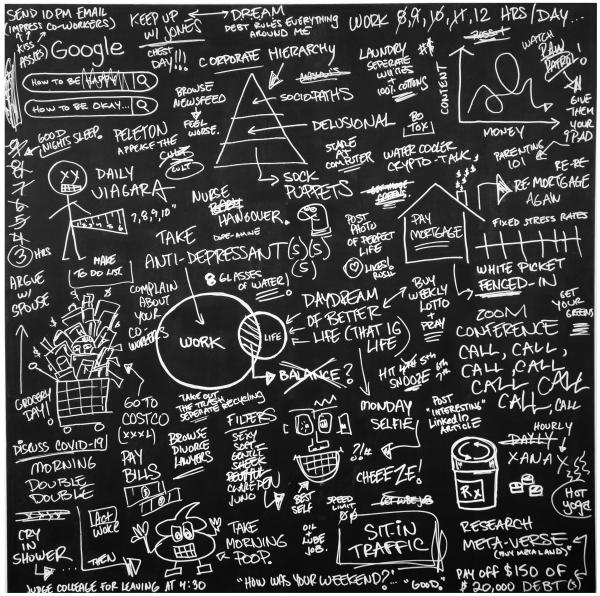 SEND 10 PM EMAIL
(IMPRESS CO-WORKERS)
KISS
ASSES
Google
HOW TO BE HAPPY
HOW TO BE OKAY...
KEEP UP
W/ JONES
DREAM
DEBT RULES EVERYTHING
AROUND ME
WORK 8, 9, 10, 11, 12 HRS/DAY...
CHEST
DAY!!!
CORPORATE HIERARCHY
SOCIOPATHS
DELUSIONAL
SOCK
PUPPETS
BROWSE
NEWSFEED
FEEL
WORSE.
LAUNDRY
SEPERATE
WHITES
100% COTTONS
CONTENT
MONEY
WATCH
PAW
PATROL!
GIVE
THEM
YOUR
IPAD
PARENTING
101
BO
TOX
GOOD
NIGHTS SLEEP.
PELETON
APPEASE THE
CULT
STARE
AT
COMPUTER
WATER COOLER
CRYPTO-TALK
RE-RE
RE-MORTGAGE
AGAIN
9
8
7
6
5
4
3 HRS
DAILY
VIAGRA
7, 8, 9, 10"
NURSE
HANGOVER.
DOPE-AMINE
TAKE
ANTI-DEPRESSANT(S)(S)
(S)
POST
PHOTO
OF PERFECT
LIFE
LIKES!
RUSH
PAY
MORTGAGE
FIXED STRESS RATES
WHITE PICKET
FENCED-IN
GET
YOUR
GREENS
MAKE
TO DO LIST
8 GLASSES
OF WATER!
ARGUE
W/
SPOUSE
COMPLAIN
ABOUT
YOUR
CO-
WORKERS
WORK
LIFE
BALANCE?
DAYDREAM
OF BETTER
LIFE (THAT IS)
LIFE)
BUY
WEEKLY
LOTTO
+
PRAY
HIT 4th 5th
SNOOZE 6th
7th
ZOOM
CONFERENCE
CALL, CALL,
CALL, CALL,
CALL CALL
CALL, CALL
GROCERY
DAY!
GO TO
COSTCO
(XXXL)
TAKE OUT
THE TRASH
SEPERATE RECYCLING
FILTERS
SEXY
SOFT
GENTLE
SHEER
CLARENDON
JUNO
BROWSE
DIVORCE
LAWYERS
BEST
SELF
MONDAY
SELFIE
?!
CHEEZE!
POST
"INTERESTING"
LinkedIN
ARTICLE
HOURLY
DAILY
XANAX
RX
HOT
YOGA
DISCUSS COVID-19
MORNING
DOUBLE
DOUBLE
PAY
BILLS
CRY
IN
SHOWER...
ACT
WOKE
THEN
TAKE
MORNING
POOP.
OIL
+
LUBE
JOB.
SPEED
LIMIT
SIT IN
TRAFFIC
RESEARCH
META-VERSE
(BUY META LAND)
JUDGE COLLEAGE FOR LEAVING AT 4:30
"HOW WAS YOUR WEEKEND?"... "GOOD."
PAY OFF $150 OF
$20,000 DEBT(S)